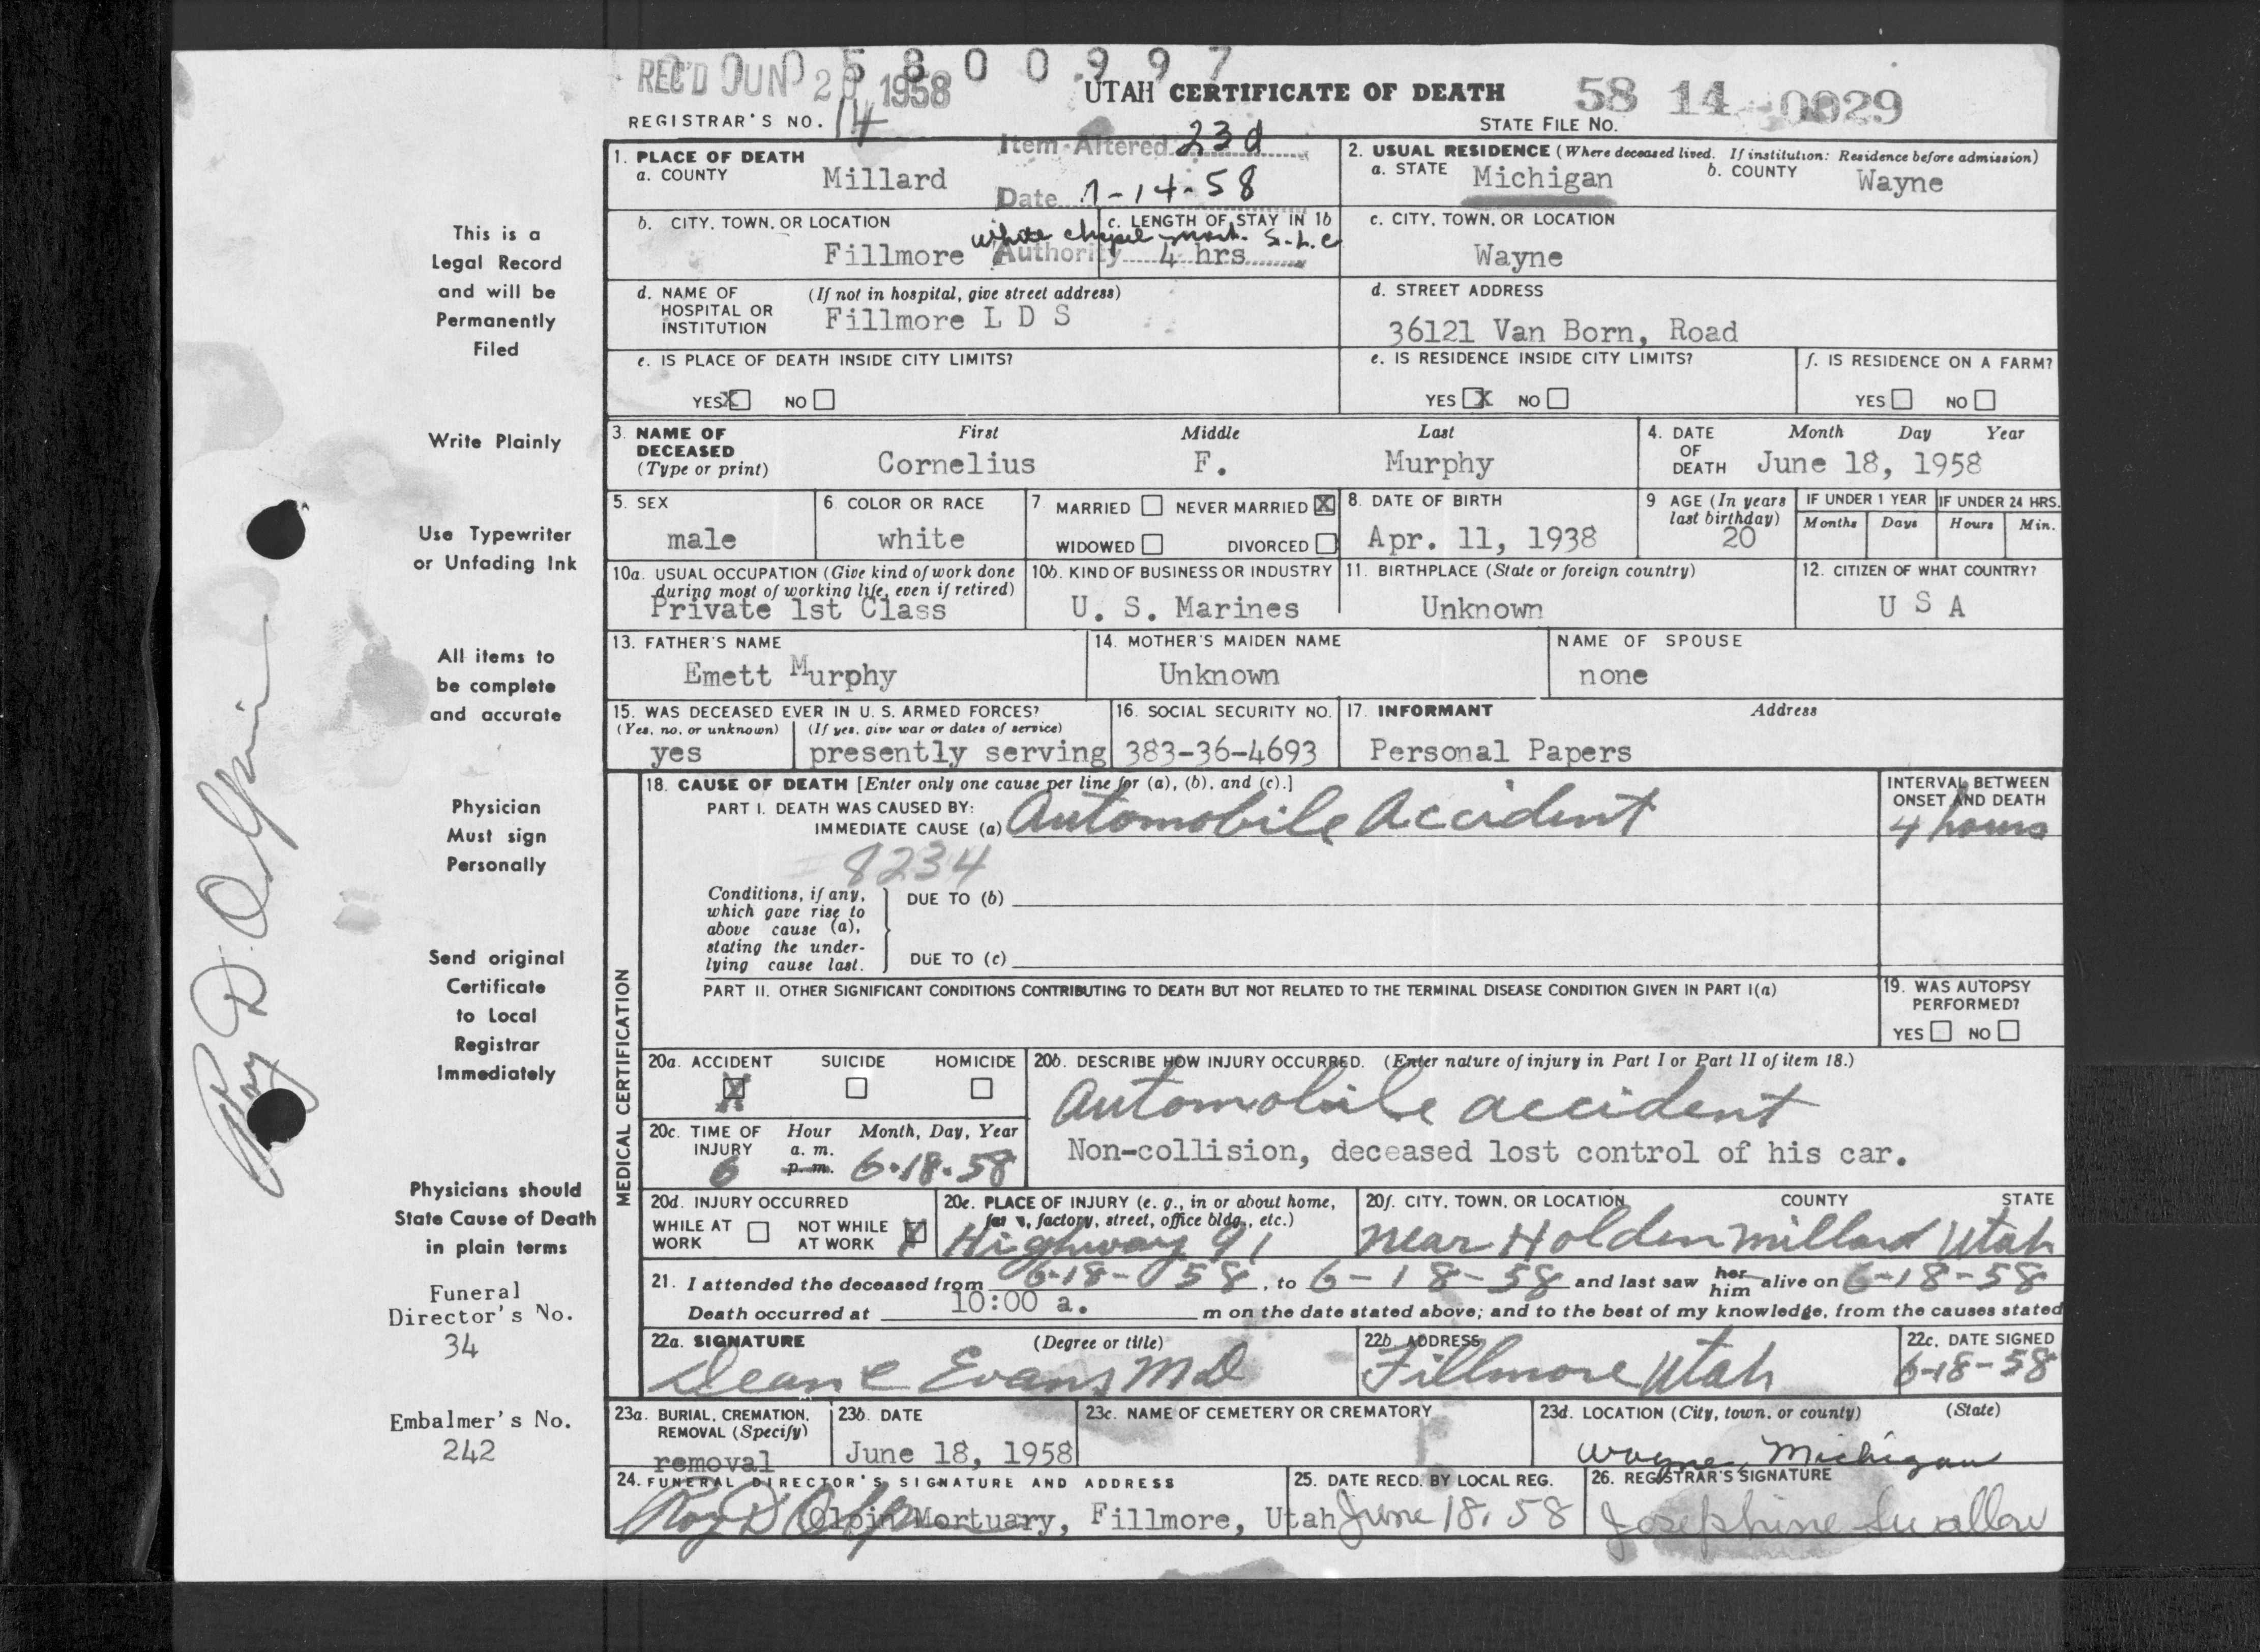 0 5 8 0 0 9 9 7
REC'D JUN 2 1958
UTAH CERTIFICATE OF DEATH
58 14 0029
REGISTRAR'S NO. 14
STATE FILE NO.
Item Altered 23d
Date 7-14-58
White chapel mort. S.L.C
Authority
1. PLACE OF DEATH
a. COUNTY Millard
2. USUAL RESIDENCE (Where deceased lived. If institution: Residence before admission)
a. STATE Michigan b. COUNTY Wayne
b. CITY, TOWN, OR LOCATION
Fillmore
c. LENGTH OF STAY IN 1b
4 hrs
c. CITY, TOWN, OR LOCATION
Wayne
d. NAME OF HOSPITAL OR INSTITUTION (If not in hospital, give street address)
Fillmore L D S
d. STREET ADDRESS
36121 Van Born, Road
e. IS PLACE OF DEATH INSIDE CITY LIMITS?
YES X NO
e. IS RESIDENCE INSIDE CITY LIMITS?
YES X NO
f. IS RESIDENCE ON A FARM?
YES NO
3. NAME OF DECEASED (Type or print)
First Middle Last
Cornelius F. Murphy
4. DATE OF DEATH Month Day Year
June 18, 1958
5. SEX
male
6. COLOR OR RACE
white
7 MARRIED NEVER MARRIED X
WIDOWED DIVORCED
8. DATE OF BIRTH
Apr. 11, 1938
9 AGE (In years last birthday)
20
IF UNDER 1 YEAR IF UNDER 24 HRS.
Months Days Hours Min.
10a. USUAL OCCUPATION (Give kind of work done during most of working life, even if retired)
Private 1st Class
10b. KIND OF BUSINESS OR INDUSTRY
U. S. Marines
11. BIRTHPLACE (State or foreign country)
Unknown
12. CITIZEN OF WHAT COUNTRY?
U S A
13. FATHER'S NAME
Emett Murphy
14. MOTHER'S MAIDEN NAME
Unknown
NAME OF SPOUSE
none
15. WAS DECEASED EVER IN U. S. ARMED FORCES?
(Yes, no, or unknown) (If yes, give war or dates of service)
yes presently serving
16. SOCIAL SECURITY NO.
383-36-4693
17. INFORMANT Address
Personal Papers
MEDICAL CERTIFICATION
18. CAUSE OF DEATH [Enter only one cause per line for (a), (b), and (c).]
PART I. DEATH WAS CAUSED BY:
IMMEDIATE CAUSE (a) Automobile Accident
INTERVAL BETWEEN ONSET AND DEATH
4 hours
8234
Conditions, if any, which gave rise to above cause (a), stating the underlying cause last.
DUE TO (b)
DUE TO (c)
PART II. OTHER SIGNIFICANT CONDITIONS CONTRIBUTING TO DEATH BUT NOT RELATED TO THE TERMINAL DISEASE CONDITION GIVEN IN PART I(a)
19. WAS AUTOPSY PERFORMED?
YES NO
20a. ACCIDENT SUICIDE HOMICIDE
X
20b. DESCRIBE HOW INJURY OCCURRED. (Enter nature of injury in Part I or Part II of item 18.)
Automobile accident
Non-collision, deceased lost control of his car.
20c. TIME OF INJURY Hour Month, Day, Year
6 a. m. p. m. 6-18-58
20d. INJURY OCCURRED
WHILE AT WORK NOT WHILE AT WORK X
20e. PLACE OF INJURY (e. g., in or about home, farm, factory, street, office bldg., etc.)
Highway 91
20f. CITY, TOWN, OR LOCATION COUNTY STATE
near Holden Millard Utah
21. I attended the deceased from 6-18-58, to 6-18-58 and last saw her him alive on 6-18-58
Death occurred at 10:00 a. m on the date stated above; and to the best of my knowledge, from the causes stated
22a. SIGNATURE (Degree or title)
Dean C Evans MD
22b. ADDRESS
Fillmore Utah
22c. DATE SIGNED
6-18-58
23a. BURIAL, CREMATION, REMOVAL (Specify)
removal
23b. DATE
June 18, 1958
23c. NAME OF CEMETERY OR CREMATORY
23d. LOCATION (City, town, or county) (State)
Wayne, Michigan
24. FUNERAL DIRECTOR'S SIGNATURE AND ADDRESS
Roy D Olpin
Olpin Mortuary, Fillmore, Utah
25. DATE RECD. BY LOCAL REG.
June 18. 58
26. REGISTRAR'S SIGNATURE
Josephine Swallow
This is a
Legal Record
and will be
Permanently
Filed
Write Plainly
Use Typewriter
or Unfading Ink
All items to
be complete
and accurate
Physician
Must sign
Personally
Send original
Certificate
to Local
Registrar
Immediately
Physicians should
State Cause of Death
in plain terms
Funeral
Director's No.
34
Embalmer's No.
242
Roy D. Olpin